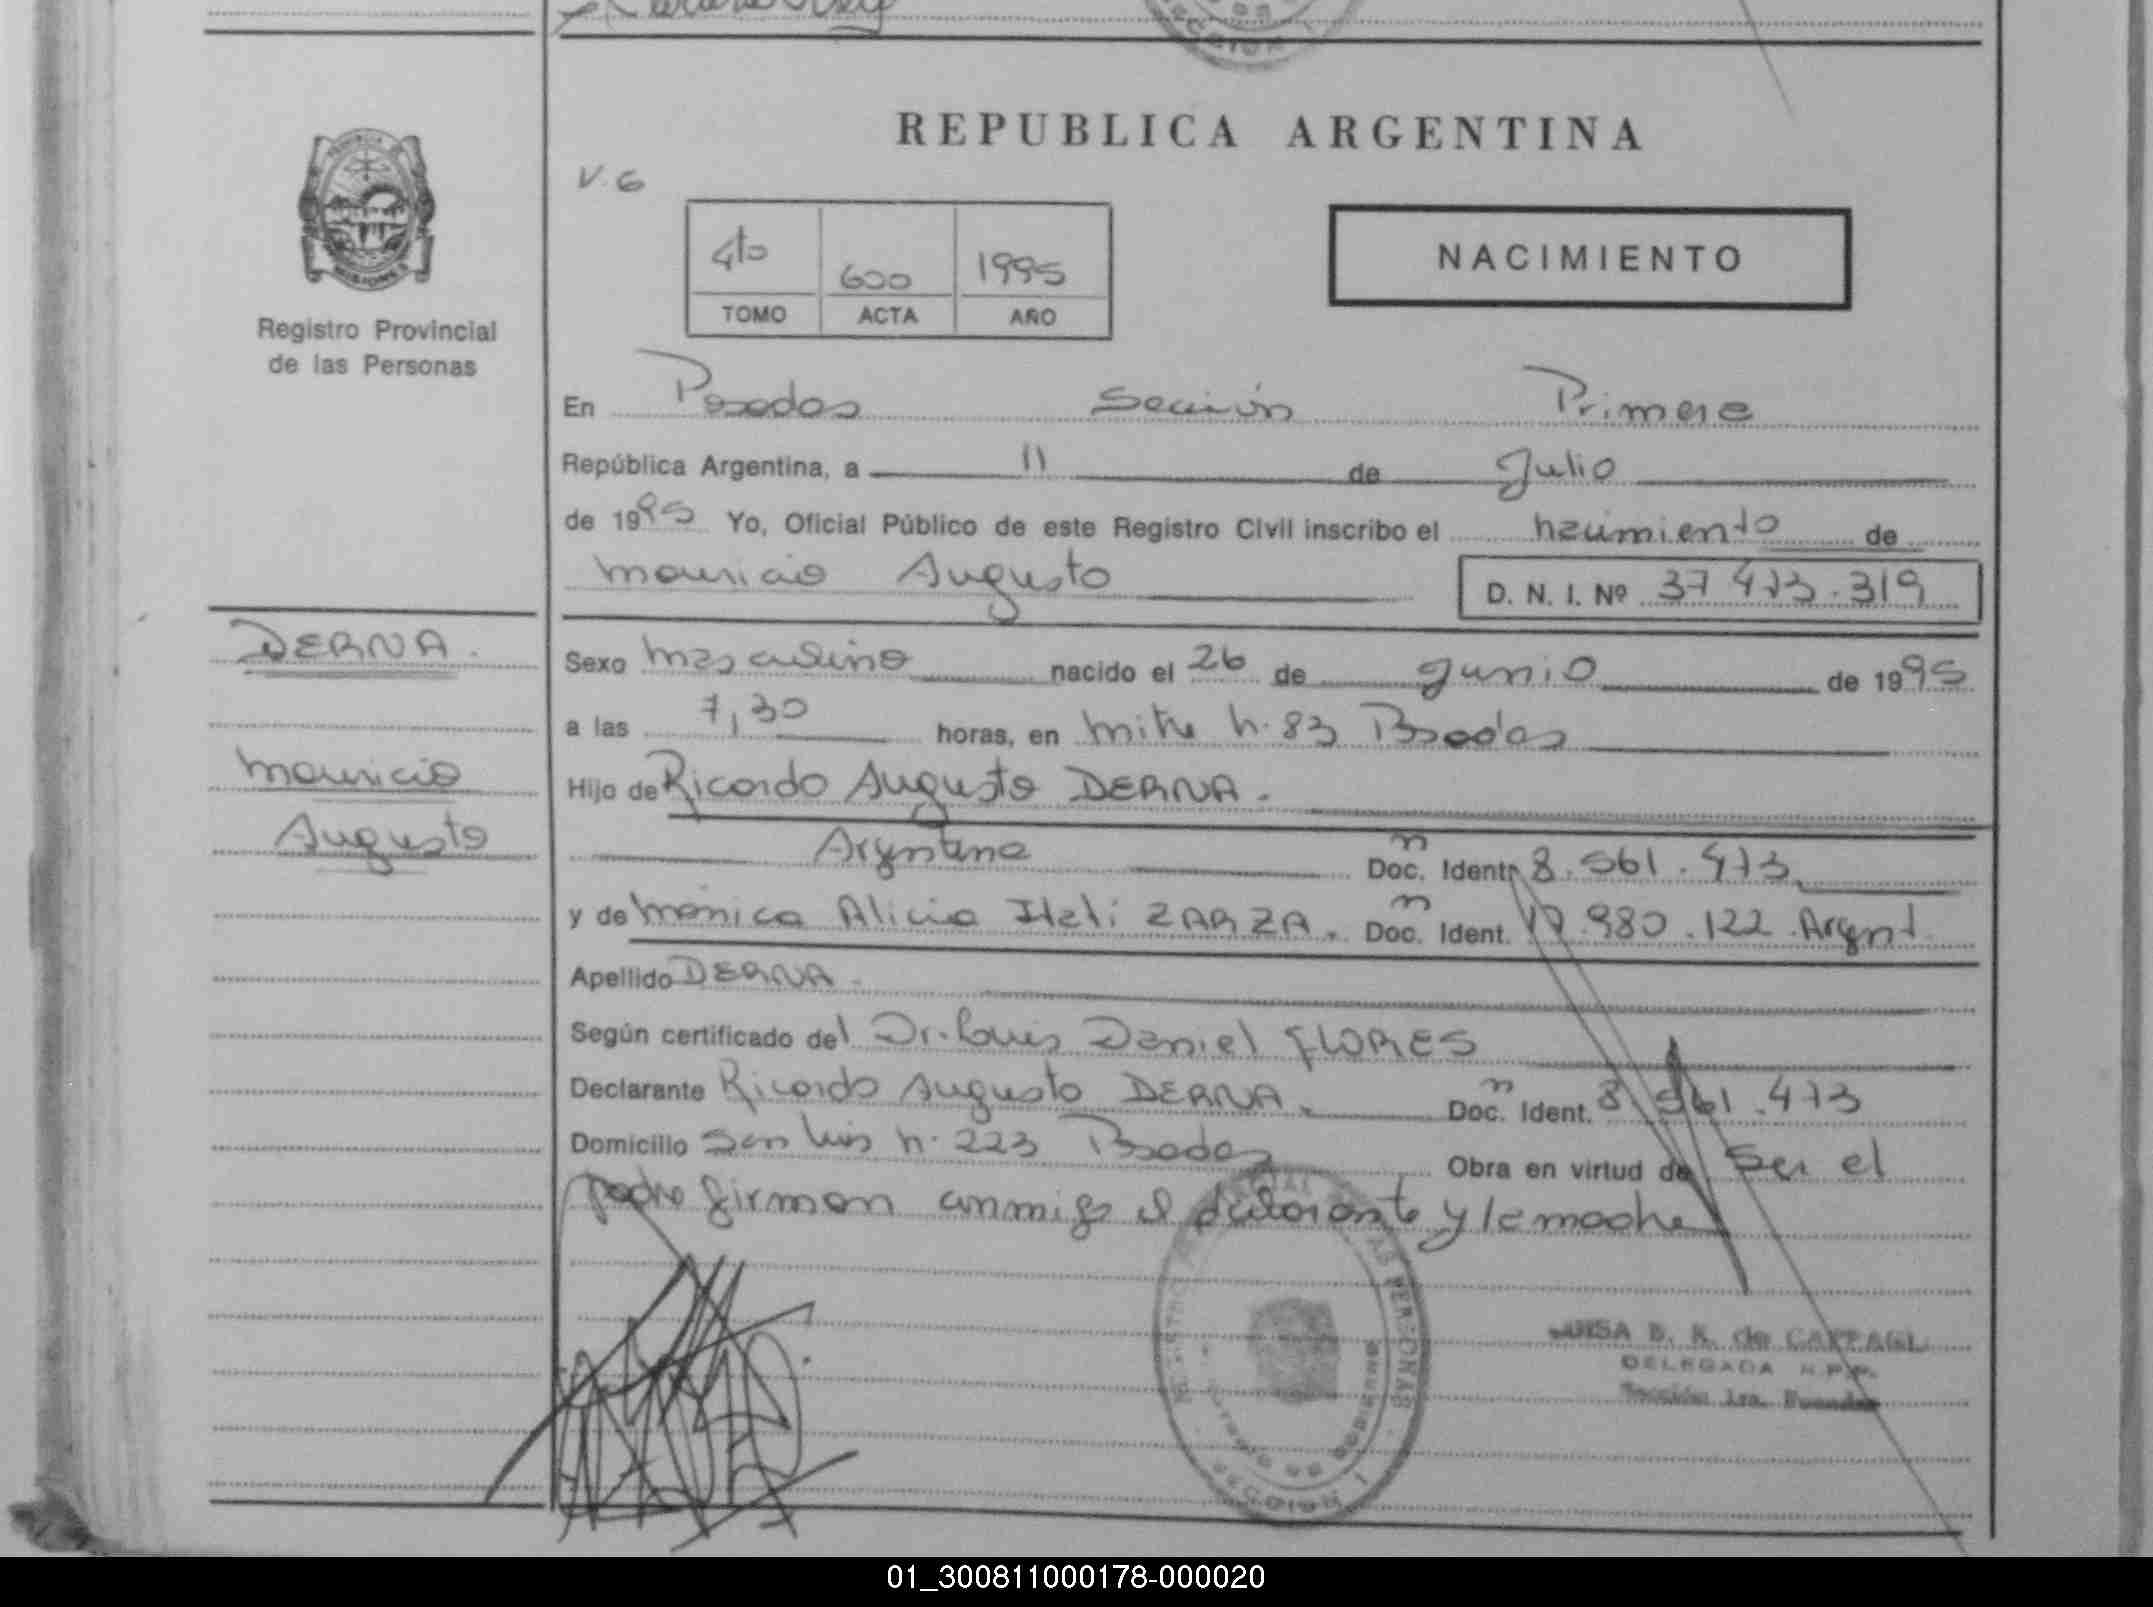 REPUBLICA ARGENTINA
V. 6
4to 600 1995
TOMO ACTA AÑO
NACIMIENTO
Registro Provincial
de las Personas
En Posadas Sección Primera
República Argentina, a 11 de Julio
de 1995 Yo, Oficial Público de este Registro Civil inscribo el nacimiento de
Mauricio Augusto D. N. I. Nº 37 473.319
DERNA.
Mauricio
Augusto
Sexo Masculino nacido el 26 de Junio de 1995
a las 7,30 horas, en Mitre n. 83 Posadas
Hijo de Ricardo Augusto DERNA.
Argentino Doc. Ident. 8.561.473
y de Mónica Alicia Itatí ZARZA. Doc. Ident. 17.980.122 Argent.
Apellido DERNA
Según certificado del Dr. Luis Daniel FLORES
Declarante Ricardo Augusto DERNA. Doc. Ident. 8.561.473
Domicilio San Luis n. 223 Posadas Obra en virtud de Ser el
padre firman conmigo el declarante y la madre
DELEGADA R.P.P.
Sección 1ra. Posadas
01_300811000178-000020